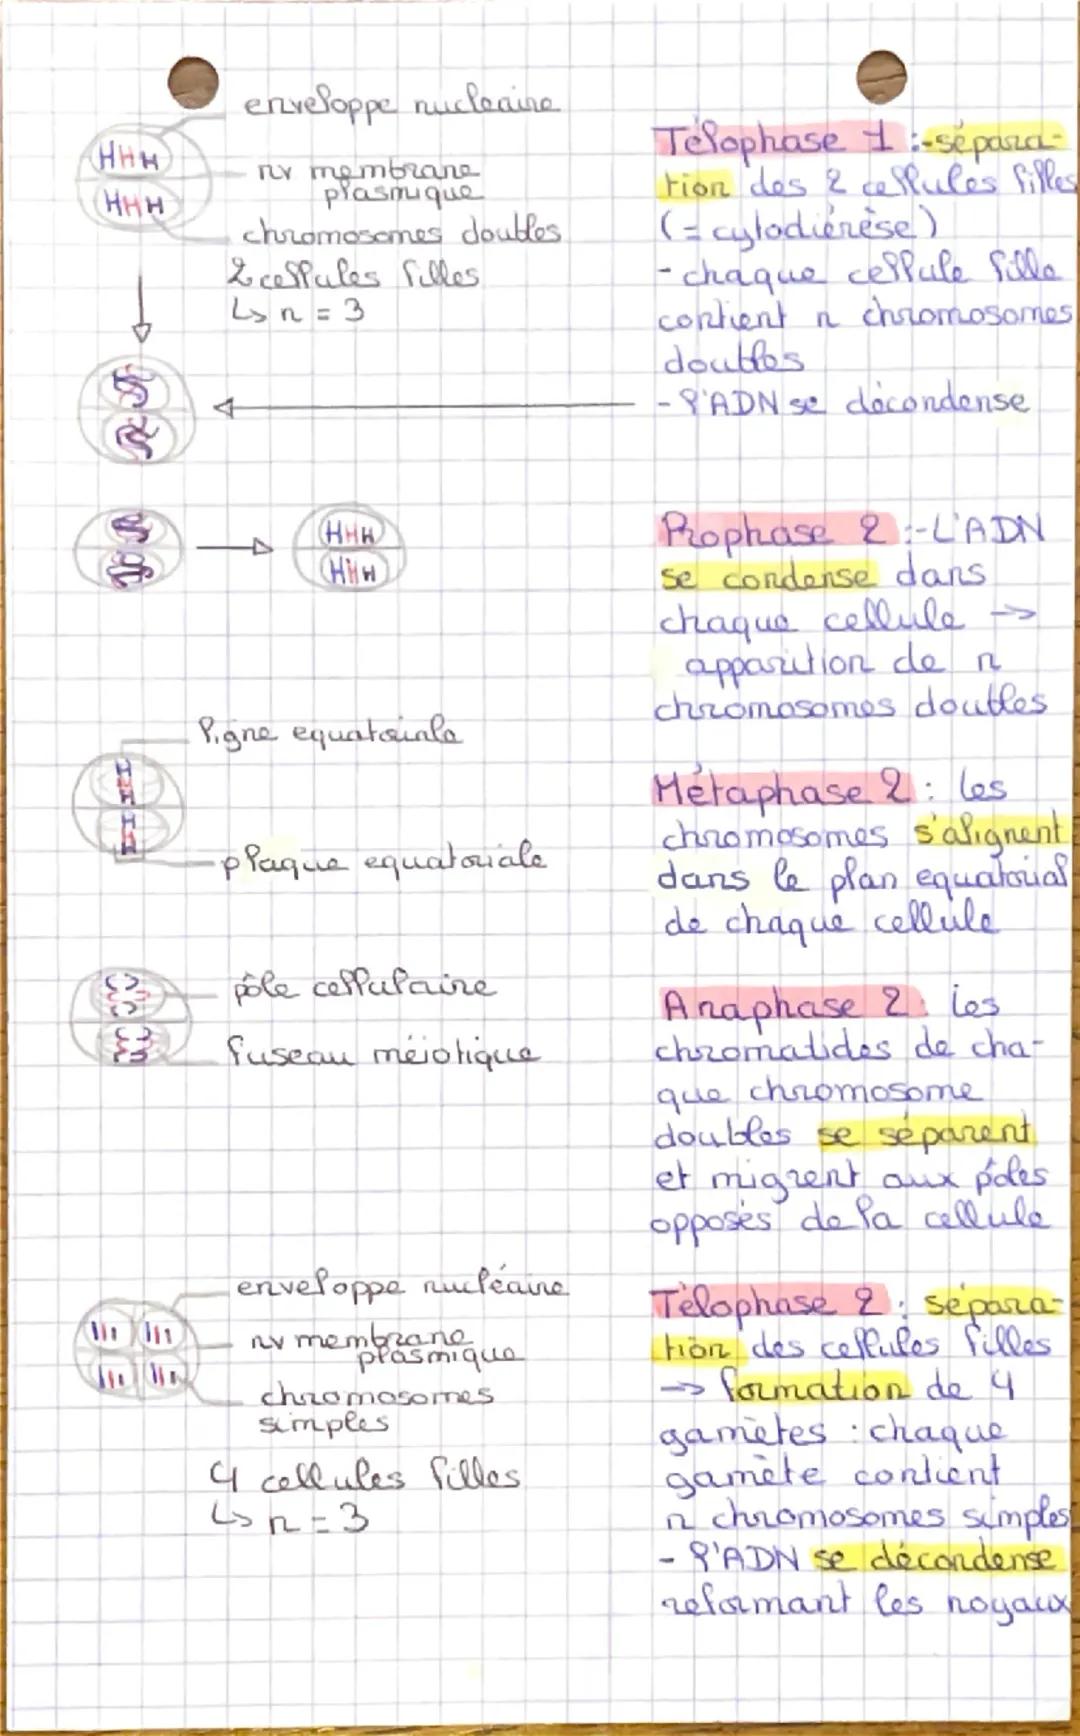 enveloppe nucléaire
nv membrane
plasmique
chromosomes doubles
2 cellules filles
↳ n = 3
Télophase 1 :- sépara-
tion des 2 cellules filles
(= cytodiérèse)
- chaque cellule fille
contient n chromosomes
doubles
- l'ADN se décondense
Prophase 2 :- L'ADN
se condense dans
chaque cellule →
apparition de n
chromosomes doubles
ligne equatoriale
plaque equatoriale
Métaphase 2 : les
chromosomes s'alignent
dans le plan equatorial
de chaque cellule
pôle cellulaire
fuseau méiotique
Anaphase 2 : les
chromatides de cha-
que chromosome
doubles se séparent
et migrent aux pôles
opposés de la cellule
enveloppe nucléaire
nv membrane
plasmique
chromosomes
simples
4 cellules filles
↳ n = 3
Télophase 2 : sépara-
tion des cellules filles
→ formation de 4
gamètes : chaque
gamète contient
n chromosomes simples
- l'ADN se décondense
reformant les noyaux